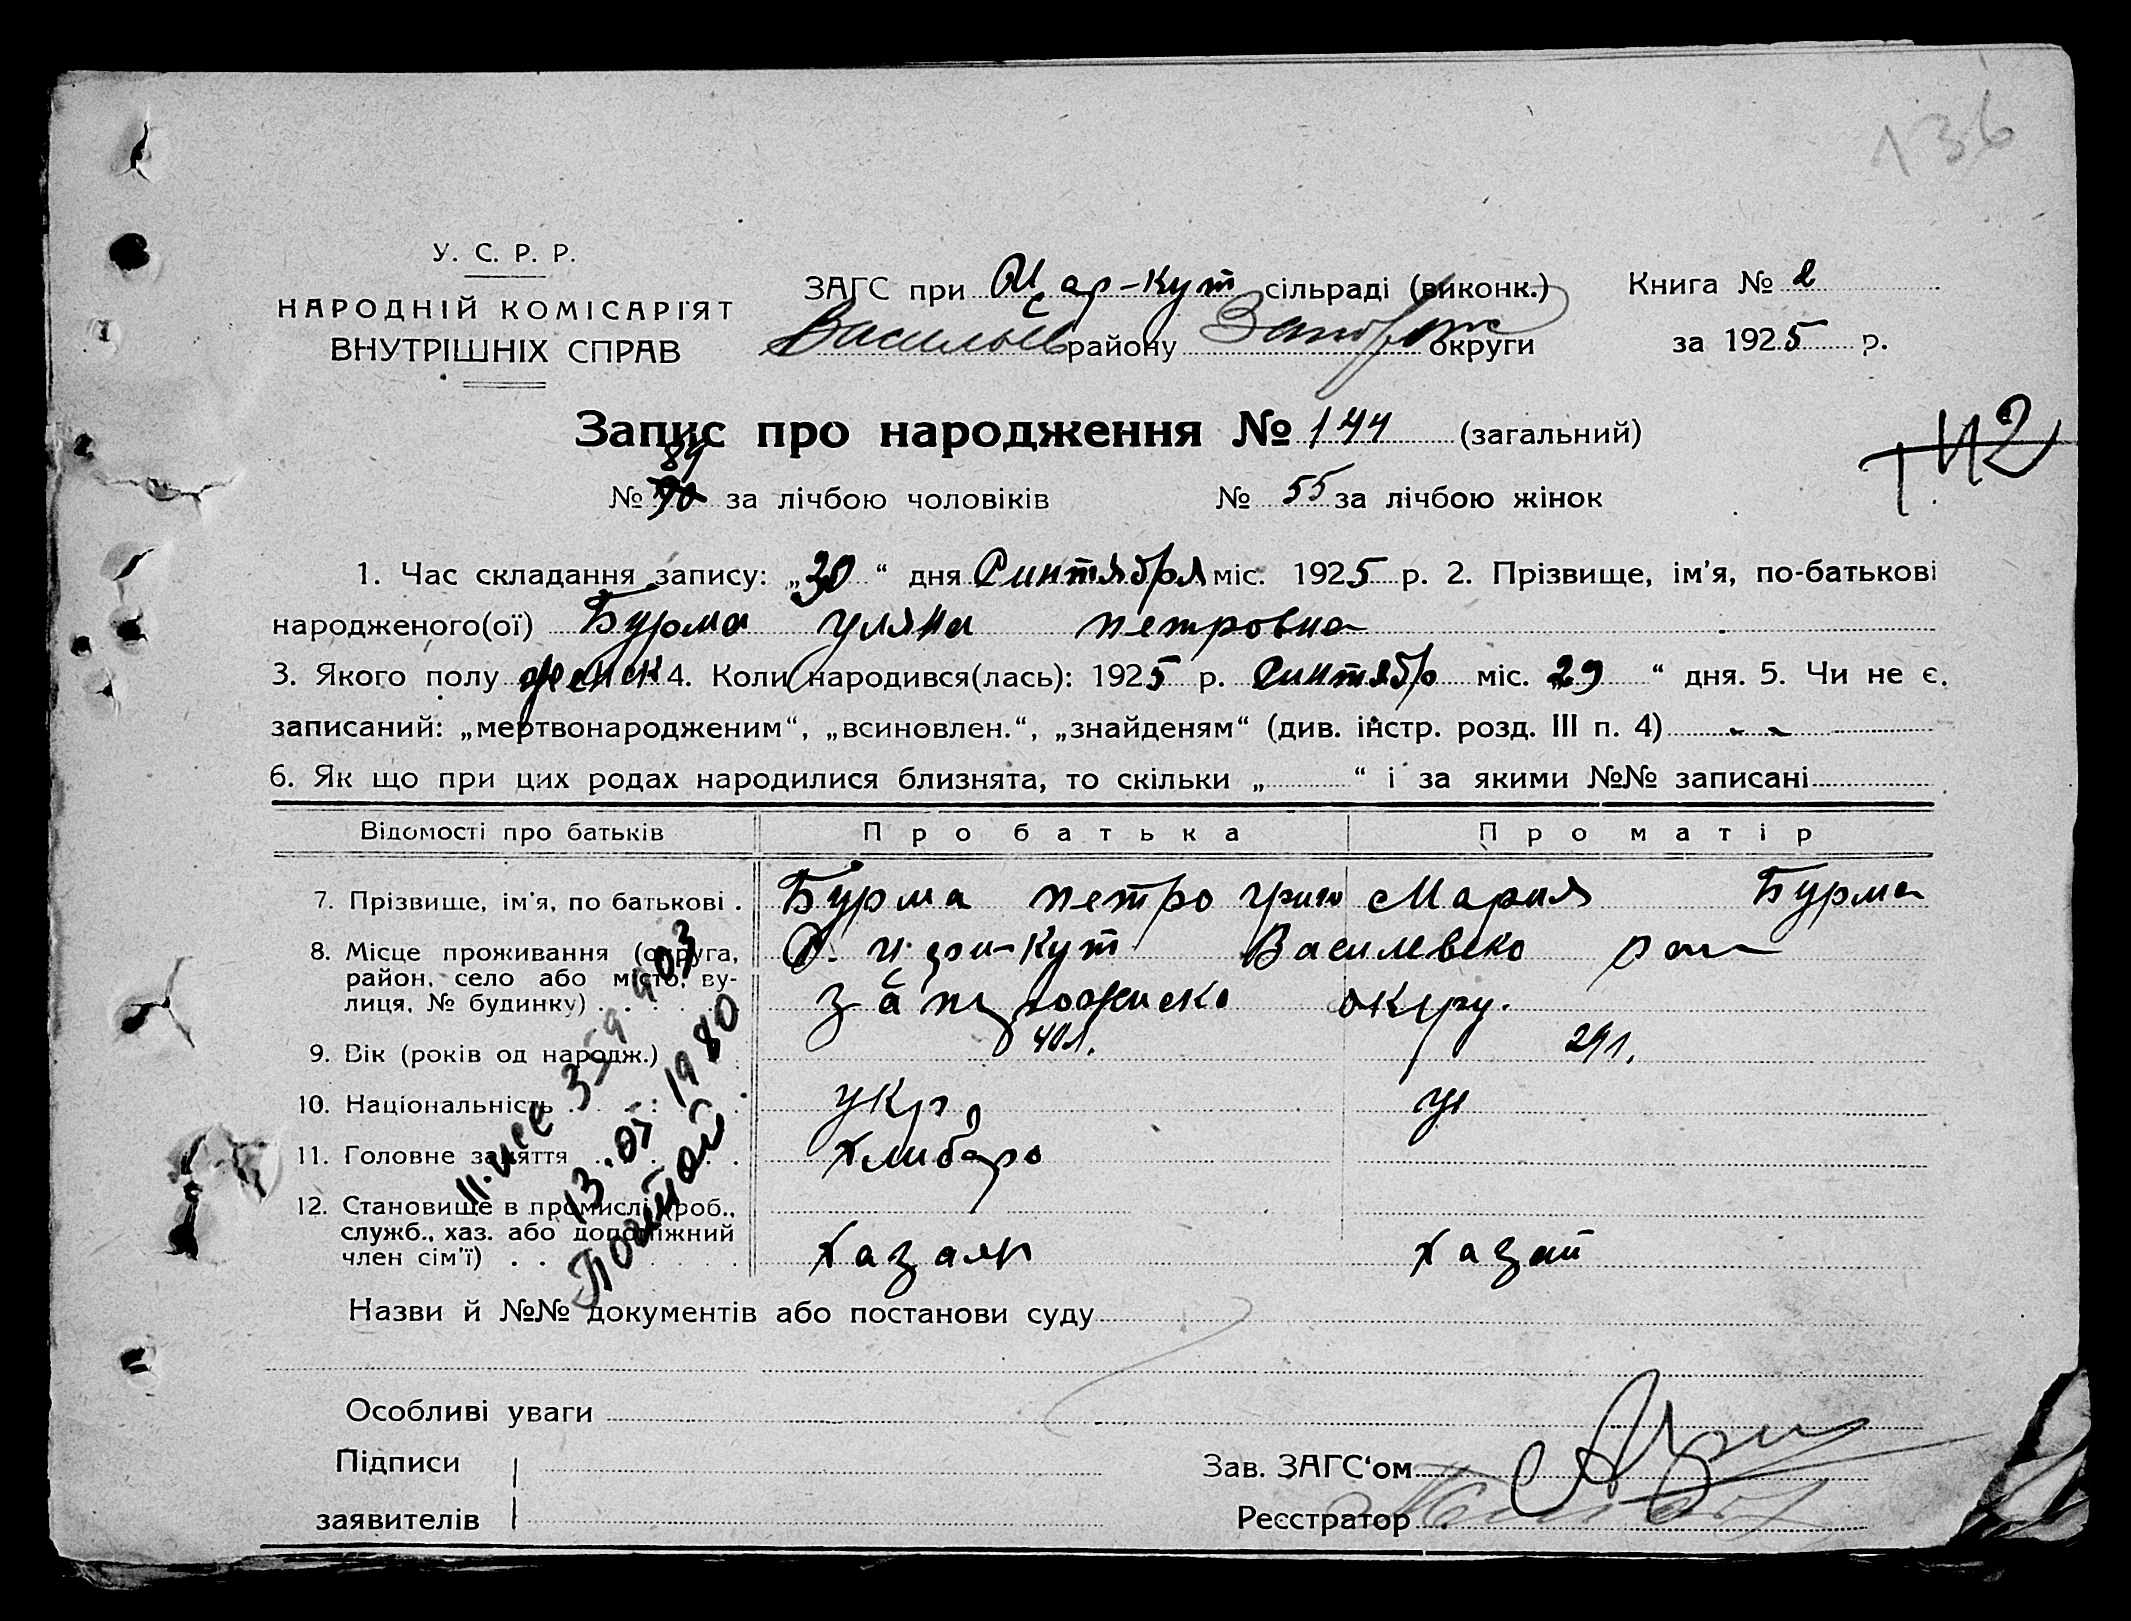 136
У. С. Р. Р.
НАРОДНІЙ КОМІСАРІЯТ
ВНУТРІШНІХ СПРАВ
ЗАГС при Цар-Кут сільраді (виконк.)
Васильев району Запорож округи
Книга № 2
за 1925 р.
Запис про народження № 144 (загальний)
142
№ 90 89 за лічбою чоловіків № 55 за лічбою жінок
1. Час складання запису: „30“ дня Синтября міс. 1925 р. 2. Прізвище, ім'я, по-батькові
народженого(ої) Бурма Уляна Петровна
3. Якого полу женск 4. Коли народився(лась): 1925 р. Синтябр міс. 29 “ дня. 5. Чи не є.
записаний: „мертвонародженим“, „всиновлен.“, „знайденям“ (див. інстр. розд. III п. 4)
6. Як що при цих родах народилися близнята, то скільки „ “ і за якими №№ записані
Відомості про батьків Про батька Про матір
7. Прізвище, ім'я, по батькові . Бурма Петро Григо Мария Бурма
8. Місце проживання (округа,
район, село або місто, ву-
лиця, № будинку)
Кут Василевско
окру.
9. Вік (років од народж.) 40 л. 29 л.
10. Національність укр у
11. Головне заняття Хлибаро
12. Становище в промислі (роб.,
служб., хаз. або допоміжний
член сім'ї)
Хазаяи Хазаи
13.05.1980
Назви й №№ документів або постанови суду
Особливі уваги
Підписи
заявителів
Зав. ЗАГС'ом
Реєстратор